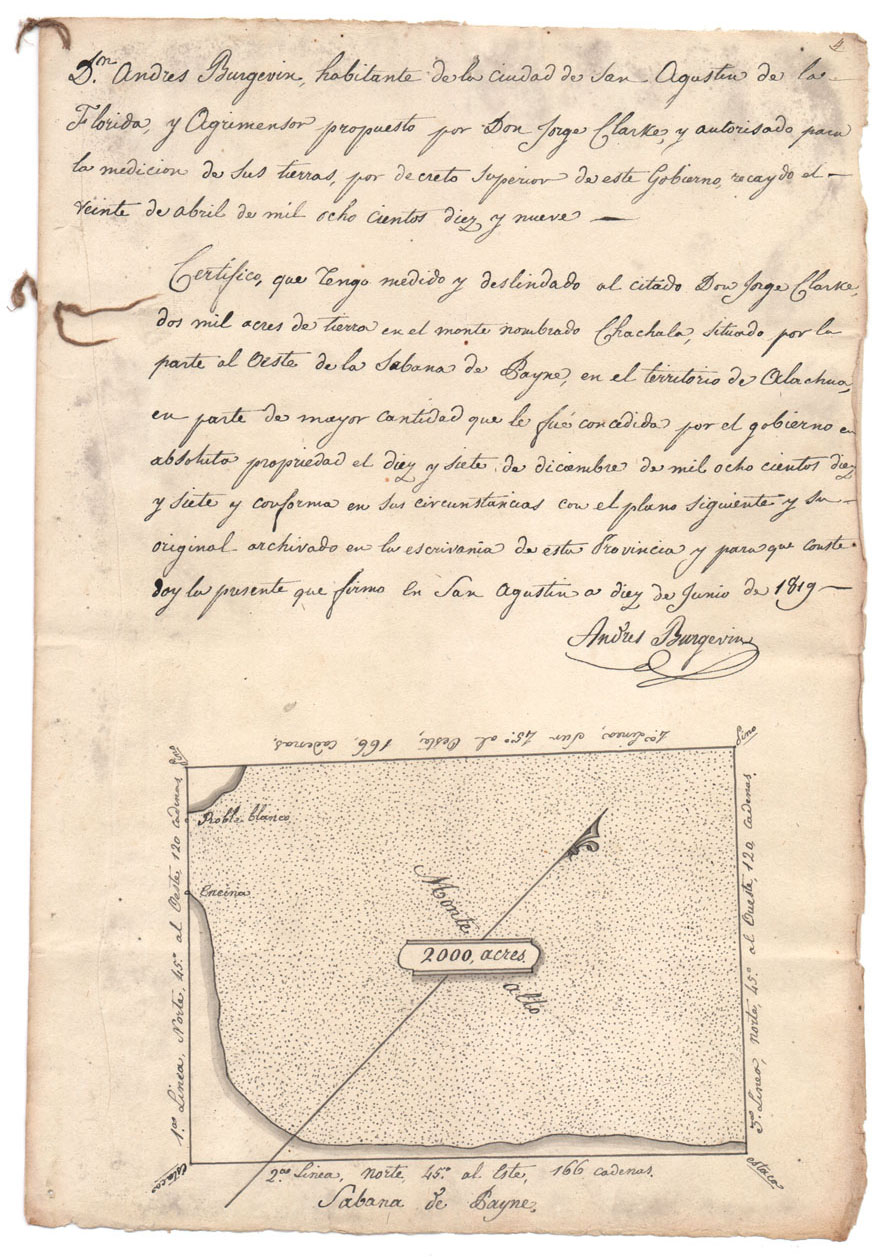 4
Dn. Andres Burgevin, habitante de la ciudad de San Agustin de la
Florida, y Agrimensor propuesto por Don Jorge Clarke, y autorisado para
la medicion de sus tierras, por decreto Superior de este Gobierno, recaydo el
veinte de abril de mil ocho cientos diez y nueve
Certifico, que Tengo medido y deslindado al citado Don Jorge Clarke,
dos mil acres de tierra en el monte nombrado Chachala, situado por la
parte al Oeste de la Sabana de Payne, en el territorio de Alachua,
en parte de mayor cantidad que le fué concedida por el gobierno en
absoluta propriedad el diez y siete de diciembre de mil ocho cientos diez
y siete y conforma en sus circunstancias con el plano siguiente y su
original archivado en la escrivania de esta Provincia y para que conste
doy la presente que firmo en San Agustin a diez de Junio de 1819
Andres Burgevin
4a. Linea, Sur 45.° al Oeste, 166, cadenas.
Pino
Pino
1a. Linea, Norte, 45.° al Oeste, 120 cadenas
Roble blanco
Encina
Monte
2000, acres.
alto
3a. Linea, norte, 45.° al Oueste, 120 cadenas.
estaca
estaca
2a. Linea, norte, 45.° al Este, 166 cadenas.
Sabana de Payne.